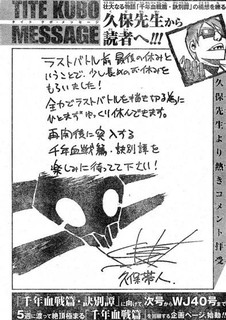 TITE KUBO
MESSAGE
タイト クボ メッセージ
壮大なる物語「千年血戦篇・訣別譚」の構想を練る
久保先生から
読者へ!!!
久保先生より熱きコメント拝受
ラストバトル前 最後の休みと
いうことで、少し長めのお休みを
もらいました!
全力でラストバトルを描き切る為に
ひとまずゆっくり休んできます。
再開後に突入する
千年血戦篇・訣別譚を
楽しみに待ってて下さい!
久保帯人
「千年血戦篇・訣別譚」に向けて 次号からWJ40号まで
5週に渡って絶頂極まる「千年血戦篇」を回顧する企画ページ、始動!!